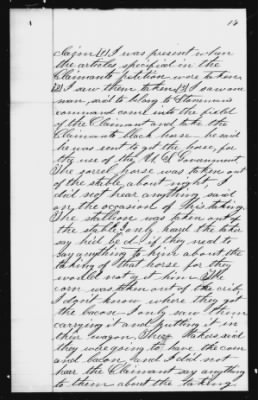 14
I was present when
the articles specified in the
Claimants petition were taken
I saw them taken I saw one
man, said to belong to
command come into the field
of the Claimant and take the
Claimants black horse. he said
he was sent to get the horse, for
the use of the U S Government
The sorrel horse was taken out
of the stable about night, I
did not hear anything said
on the occasion of this taking.
The stallion was taken out of
the stable I only heard the taker
say he'd be d--d if they need to
say anything to him about the
taking of that horse for they
would not get him The
corn was taken out of the crib,
I don't know where they got
the bacon I only saw them
carrying it and putting it in
their wagon. These takers said
they were going to have the corn
and bacon, and I did not
hear the Claimant say anything
to them about the taking